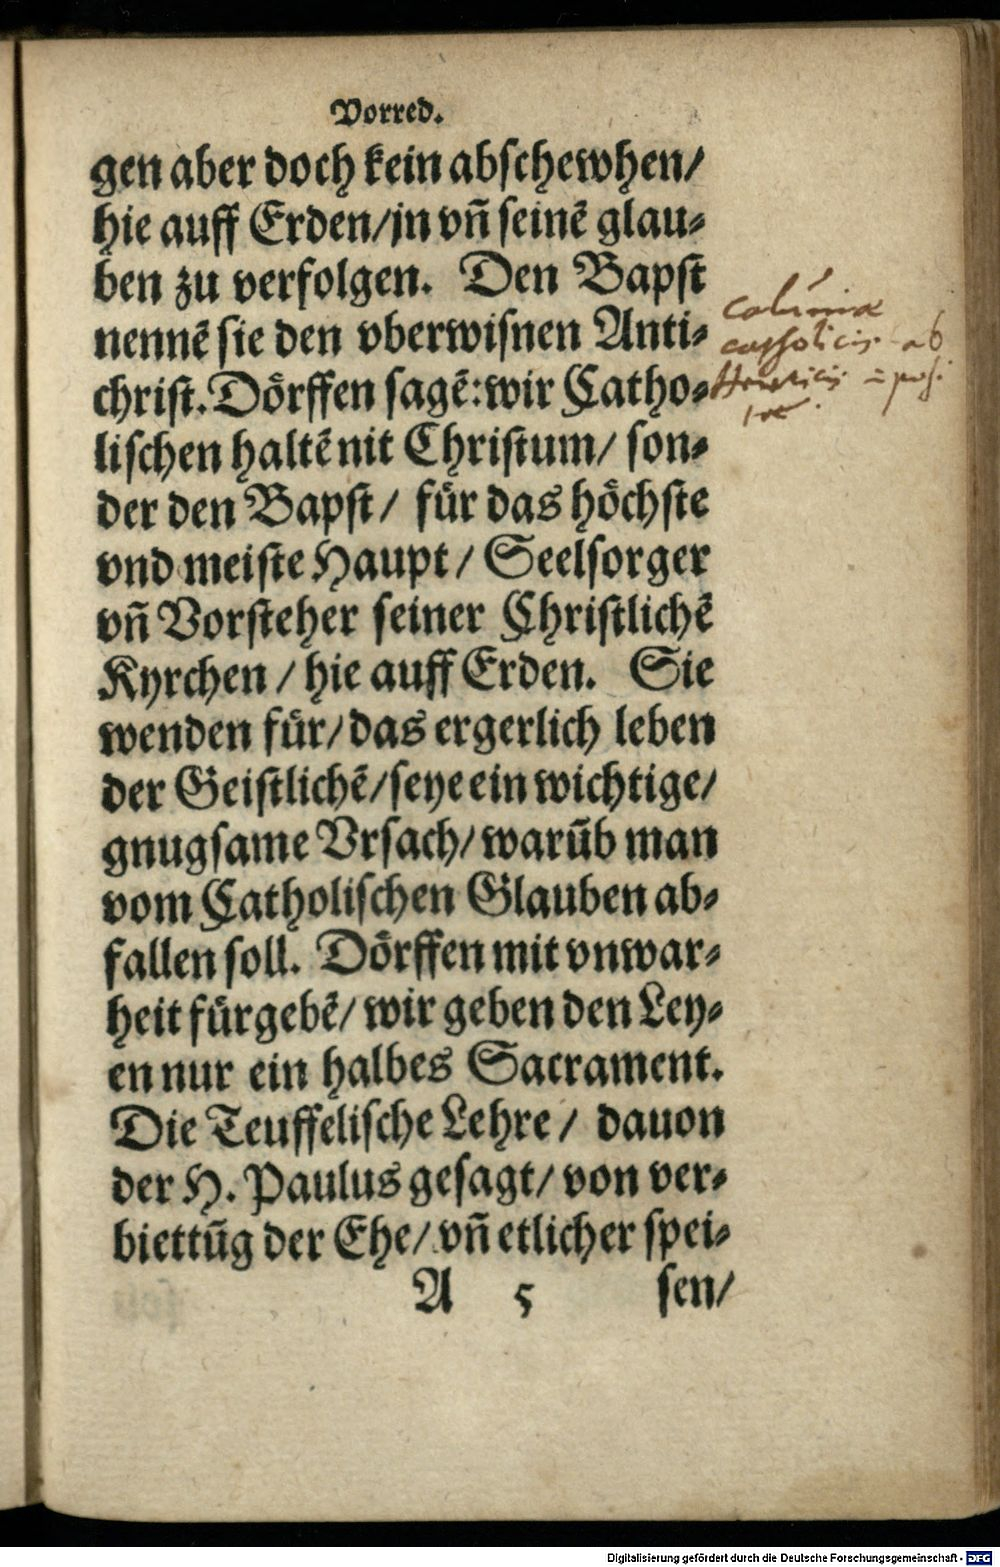 Vorred.
gen aber doch kein abschewhen/
hie auff Erden/jn vñ seinē glau⸗
ben zu verfolgen. Den Bapst
nennē sie den vberwisnen Anti⸗
christ. Dörffen sagē: wir Catho⸗
lischen haltē nit Christum/ son⸗
der den Bapst/ für das höchste
vnd meiste Haupt/ Seelsorger
vñ Vorsteher seiner Christlichē
Kyrchen/ hie auff Erden. Sie
wenden für/das ergerlich leben
der Geistlichē/seye ein wichtige/
gnugsame Vrsach/ warūb man
vom Catholischen Glauben ab⸗
fallen soll. Dörffen mit vnwar⸗
heit fürgebē/ wir geben den Ley⸗
en nur ein halbes Sacrament.
Die Teuffelische Lehre/ dauon
der H. Paulus gesagt/ von ver⸗
biettūg der Ehe/ vñ etlicher spei⸗
A 5 sen/
calūniæ
catholicis ab
Hæreticis
Digitalisierung gefördert durch die Deutsche Forschungsgemeinschaft - DFG